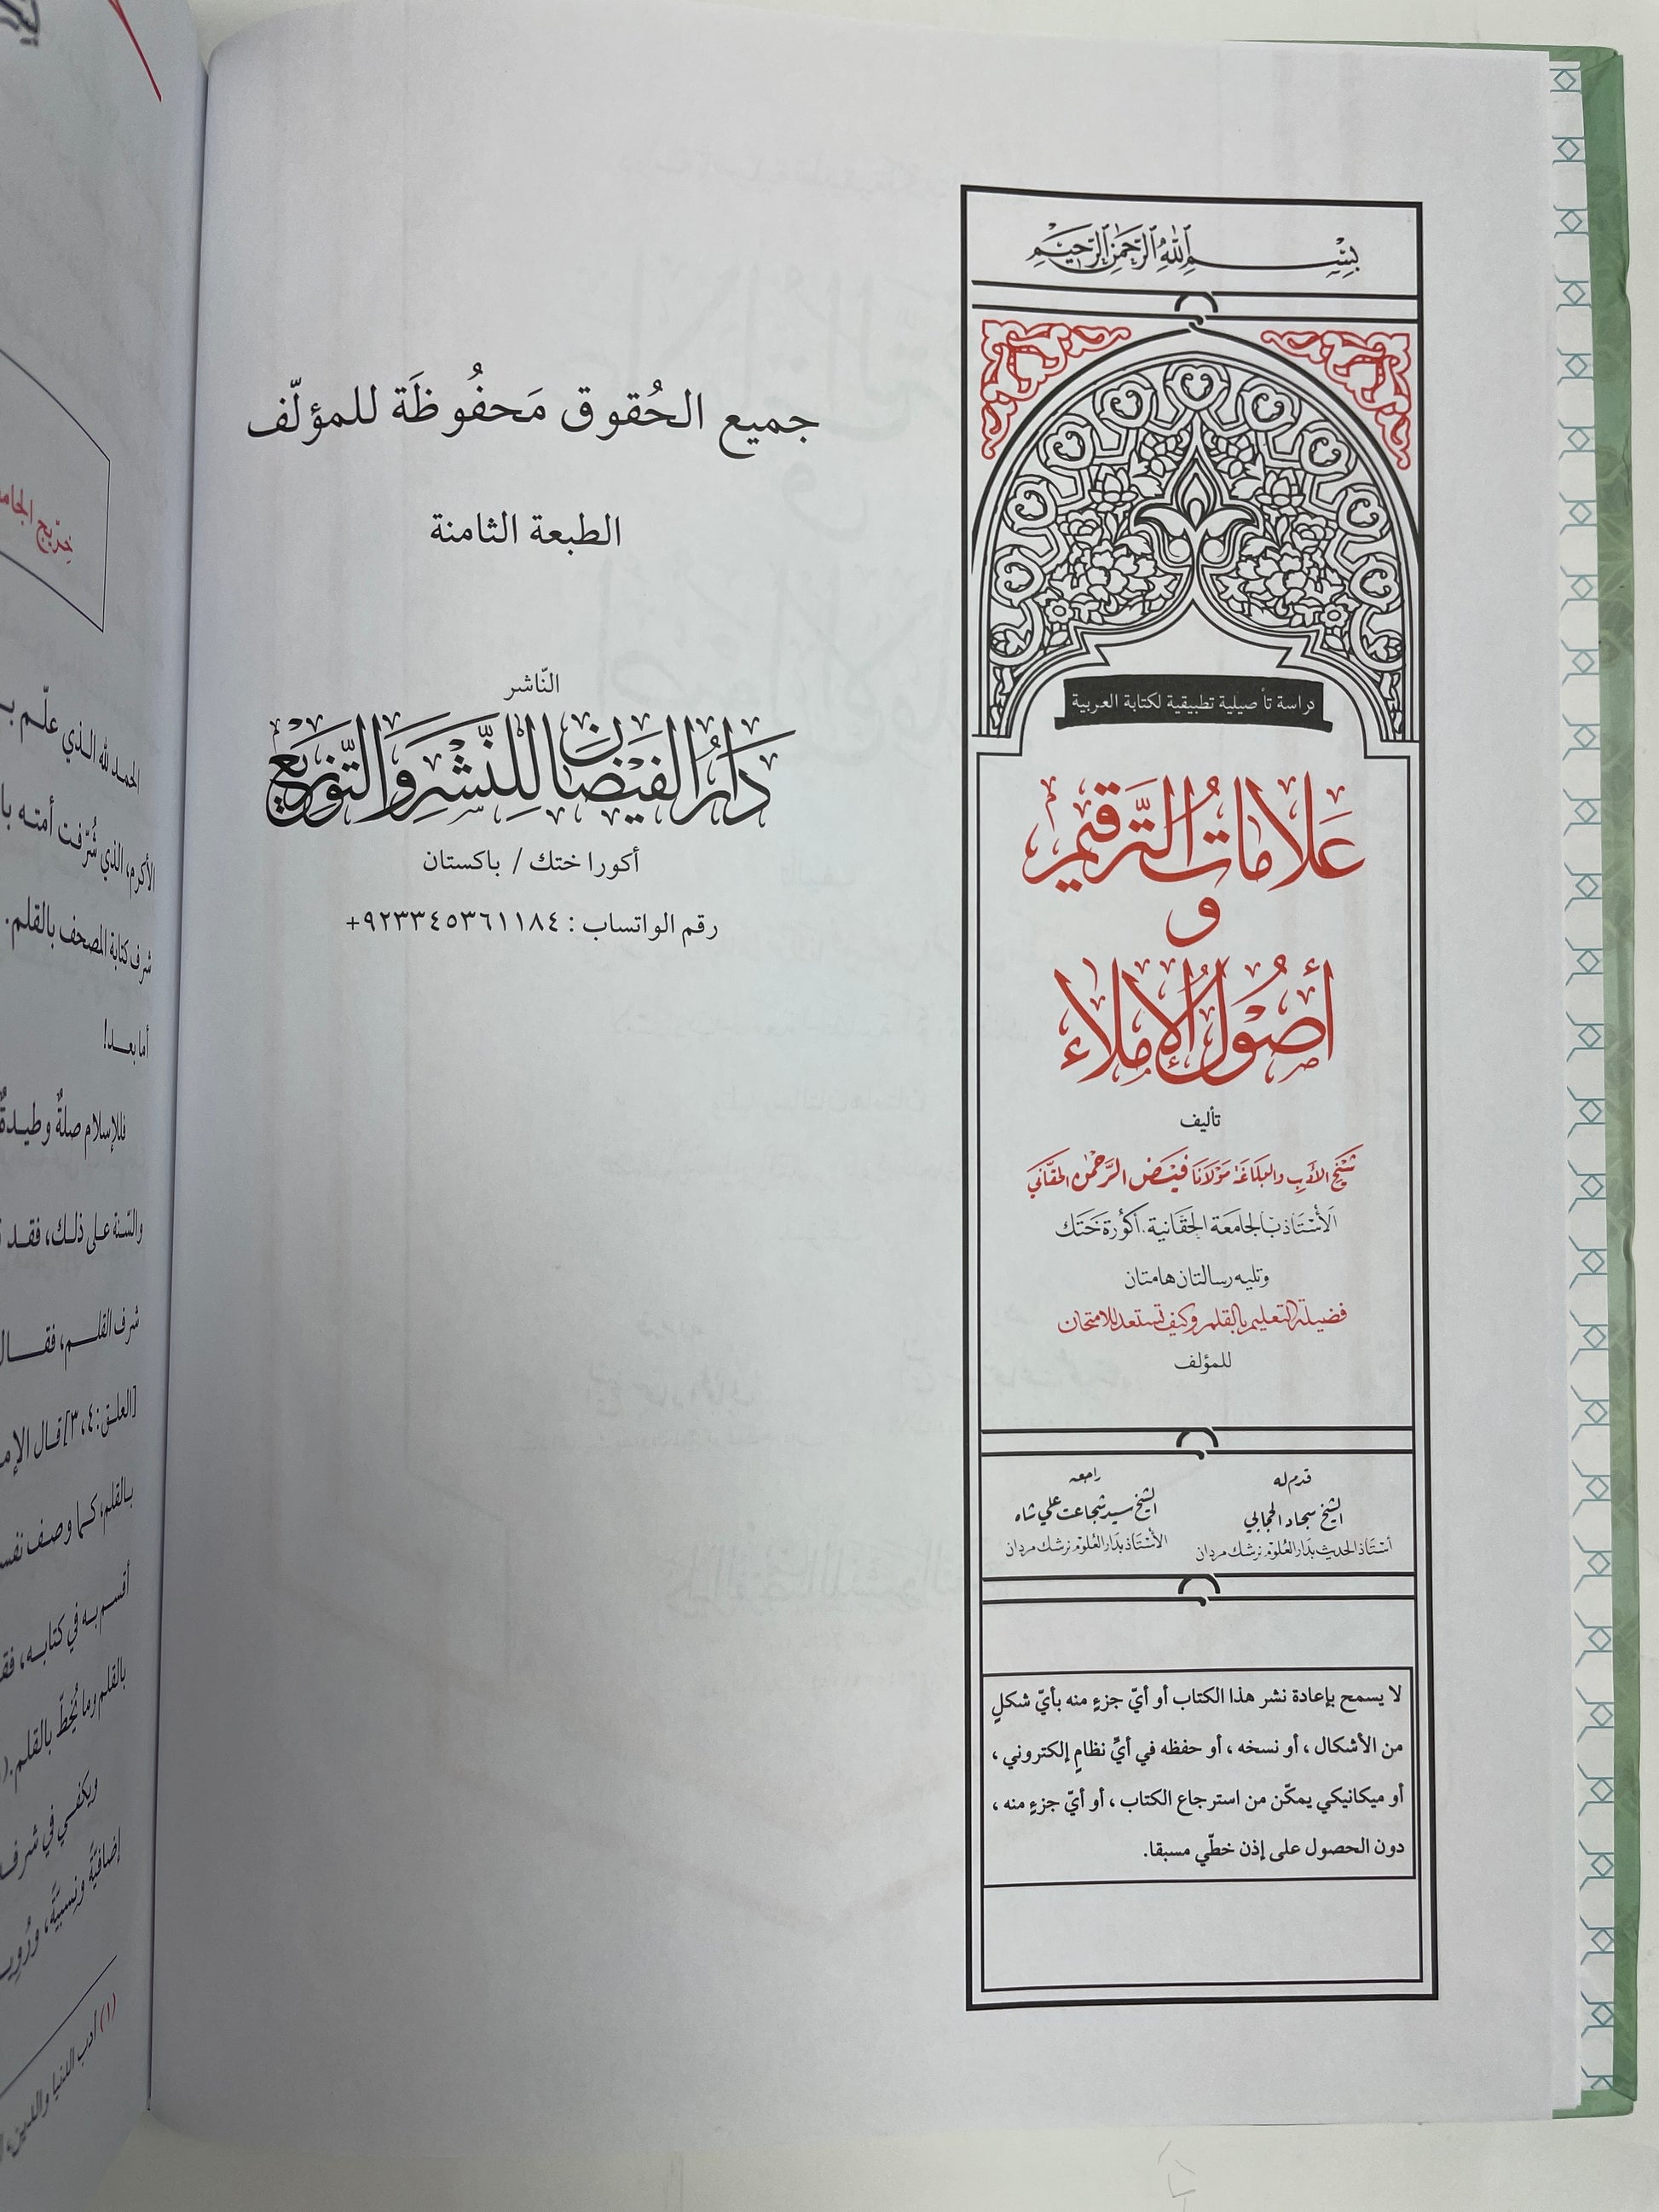 بِسْمِ اللهِ الرَّحْمٰنِ الرَّحِيْمِ
دراسة تأصيلية تطبيقية لكتابة العربية
عَلامَاتُ التَّرقيم
و
أُصُولُ الإملاء
تأليف
شَيْخ الأدَبِ والبلاغَة مَوْلَانَا فَيْضُ الرَّحْمٰن الحَقَّاني
الأُسْتَاذ بالجَامعَة الحَقَّانية. أكَوْرَة خَتَك
وتليه رسالتان هامتان
فضيلة التعليم بالقلم وكيف تستعد للامتحان
للمؤلف
قدم له
الشيخ سجاد الحجابي
أسْتَاذ الحديث بدَار العُلوْم نرشك مردان
راجعه
الشيخ سيد شجاعت علي شاه
الأسْتَاذ بدَار العُلوْم نرشك مردان
لا يسمح بإعادة نشر هذا الكتاب أو أيّ جزءٍ منه بأيّ شكلٍ
من الأشكال ، أو نسخه ، أو حفظه في أيِّ نظامٍ إلكتروني ،
أو ميكانيكي يمكّن من استرجاع الكتاب ، أو أيّ جزءٍ منه ،
دون الحصول على إذن خطّي مسبقا.
جميع الحُقوق مَحفُوظَة للمؤلّف
الطبعة الثامنة
النّاشر
دَارُ الفَيْضَان لِلنَّشْرِ وَالتَّوْزِيْع
أكورا ختك / باكستان
رقم الواتساب : ٩٢٣٣٤٥٣٦١١٨٤+
خرّيج الجام
الحمد لله الذي علّم
الأكرم، الذي شُرّفت أمته
شرف كتابة المصحف بالقلم.
أما بعد!
فللإسلام صلةٌ وطيدةٌ
والسّنة على ذلك، فقد
شرف القلم، فقال
[العلق: ٣،٤] قال
بالقلم، كما وصف
أقسم به في كتابه،
بالقلم وما يُخطّ بالقلم.
ويكفي في
إضافيّةً ونسبيّةً،
(١) أدب الدنيا والدين،